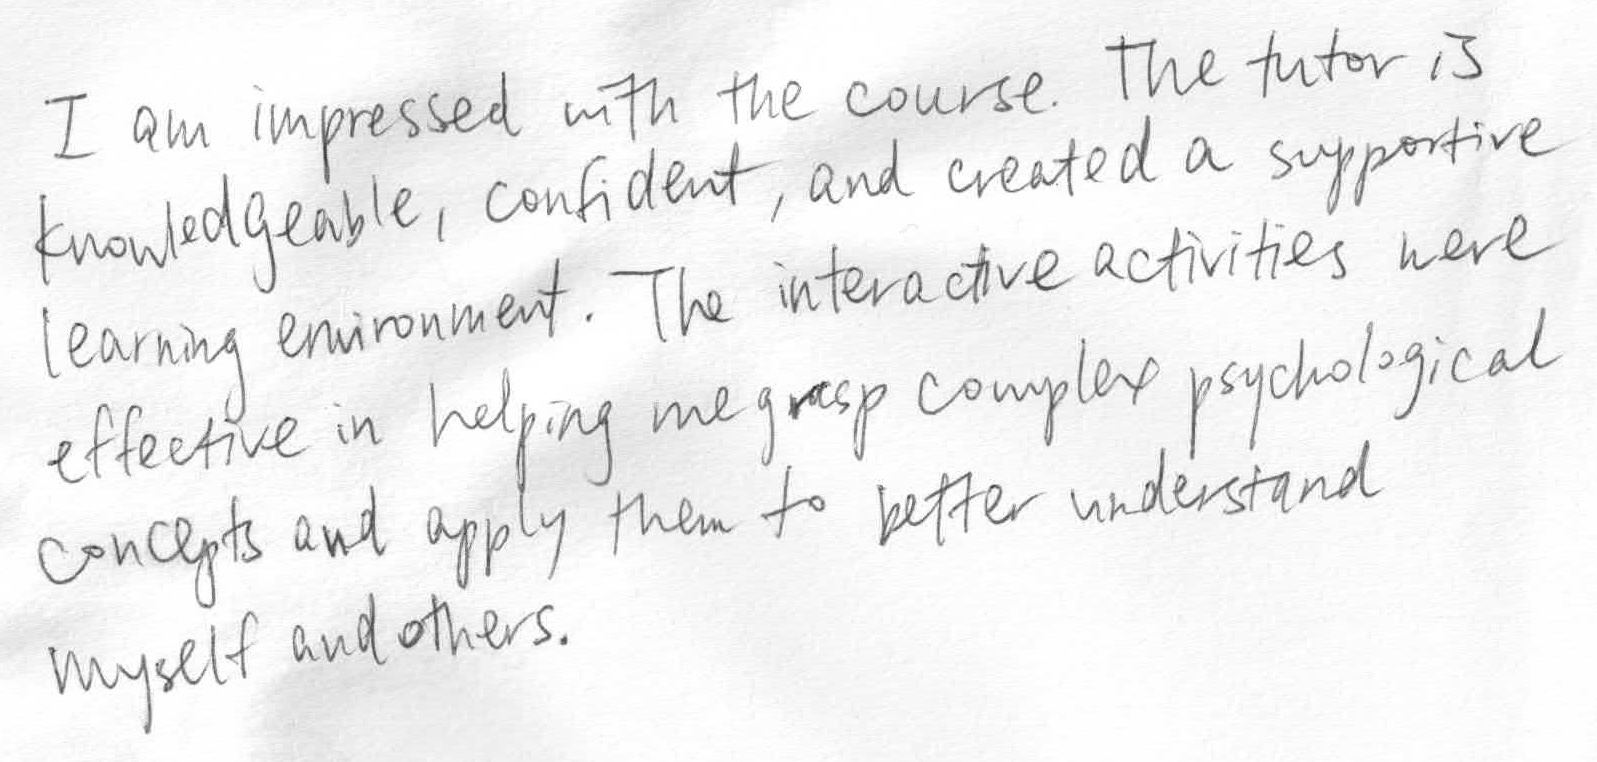 I am impressed with the course. The tutor is
knowledgeable, confident, and created a supportive
learning environment. The interactive activities were
effective in helping me grasp complex psychological
concepts and apply them to better understand
myself and others.